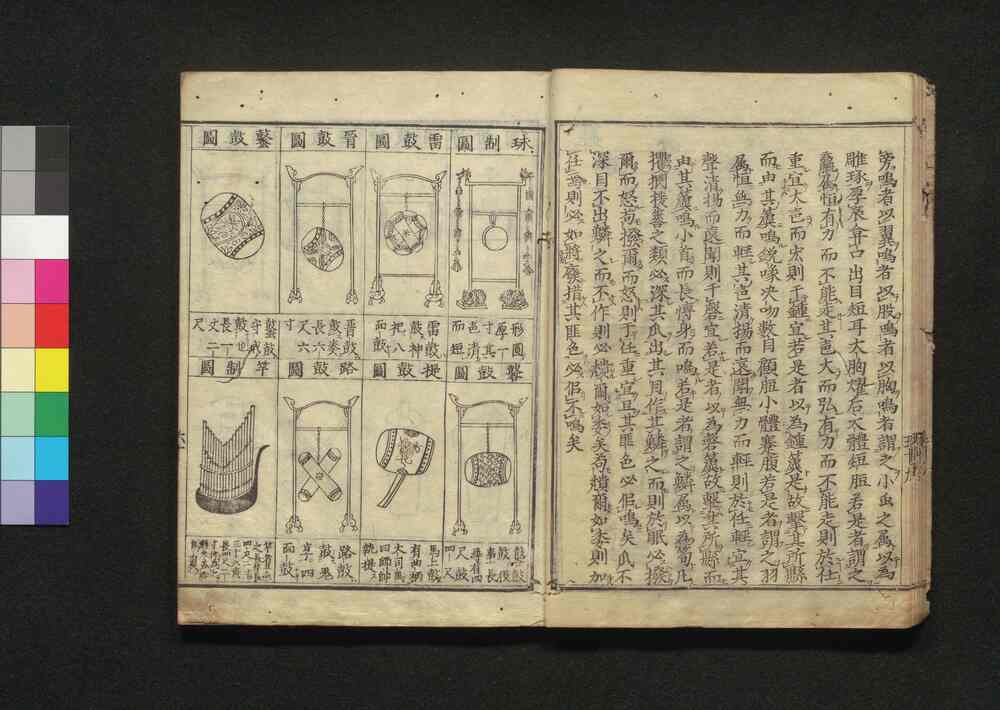 旁鳴者以翼鳴者以股鳴者以胸鳴者謂之小虫之属以為
雕琢厚唇弇口出目短耳大胸燿后大體短脰若是者謂之
臝属恒有力而不能走其声大而弘有力而不能走則於任
重宜大声而宏則于鍾宜若是者以為鍾虡是故擊其所縣
而由其虡鳴銳喙决吻數目顧脰小體騫腹若是者謂之羽
属恒無力而輕其声清揚而遠聞無力而輕則於任輕宜其
聲清揚而遠聞則于磬宜若是者以為磬虡故擊其所縣而
由其虡鳴小首而長摶身而鳴若是者謂之鱗属以為筍凡
攫閷援簭之類必深其爪出其目作其鱗之而則於眂必撥
爾而怒苟撥爾而怒則于任重宜且其匪色必似鳴矣爪不
深目不出鱗之而不作則必頹爾如委矣苟頹爾如委則加
任焉則必如將廢措其匪色必似不鳴矣
球制圖
形圓
厚一
寸其
声清
而短
雷鼓圖
雷鼓
鼓神
祀八
面鼓
晉鼓圖
晋鼓
鼓奏
長六
尺六
寸
鼛鼓圖
鼛鼓
守
鼓也
長一
丈二
尺
鼖鼓圖
鼖鼓
鼓
事長
八尺
鼓四尺
提鼓圖
馬上鼓
有曲柄
大司馬
曰師帥
執提
路鼓圖
路鼓
鼓鬼
享四
面鼓
竽制圖